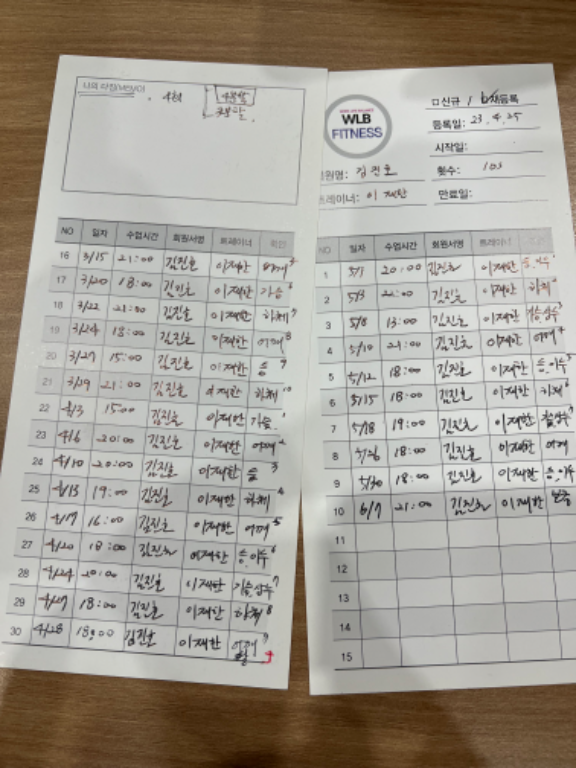 나의 다짐(MEMO)
4회
NO 일자 수업시간 회원서명 트레이너 확인
16 3/15 21:00 김진호 이재한 어깨 5
17 3/20 18:00 김진호 이재한 가슴 6
18 3/22 21:00 김진호 이재한 하체 7
19 3/24 18:00 김진호 이재한 어깨 8
20 3/27 15:00 김진호 이재한 등 9
21 3/29 21:00 김진호 이재한 하체 10
22 4/3 15:00 김진호 이재한 가슴 1
23 4/6 20:00 김진호 이재한 어깨 2
24 4/10 20:00 김진호 이재한 등 3
25 4/13 19:00 김진호 이재한 하체 4
26 4/17 16:00 김진호 이재한 어깨 5
27 4/20 18:00 김진호 이재한 등.이두 6
28 4/24 20:00 김진호 이재한 가슴삼두 7
29 4/27 18:00 김진호 이재한 하체 8
30 4/28 18:00 김진호 이재한 어깨 9
WLB
FITNESS
신규 / 재등록
등록일: 23.4.25
시작일:
회원명: 김진호 횟수: 10s
트레이너: 이재한 만료일:
NO 일자 수업시간 회원서명 트레이너
1 5/1 20:00 김진호 이재한
2 5/3 22:00 김진호 이재한 하체
3 5/8 13:00 김진호 이재한 가슴삼두
4 5/10 21:00 김진호 이재한 어깨
5 5/12 18:00 김진호 이재한 등.이두
6 5/15 18:00 김진호 이재한 하체
7 5/18 19:00 김진호 이재한 가슴삼두
8 5/26 18:00 김진호 이재한 어깨
9 5/30 18:00 김진호 이재한 등.이두
10 6/7 21:00 김진호 이재한
11
12
13
14
15